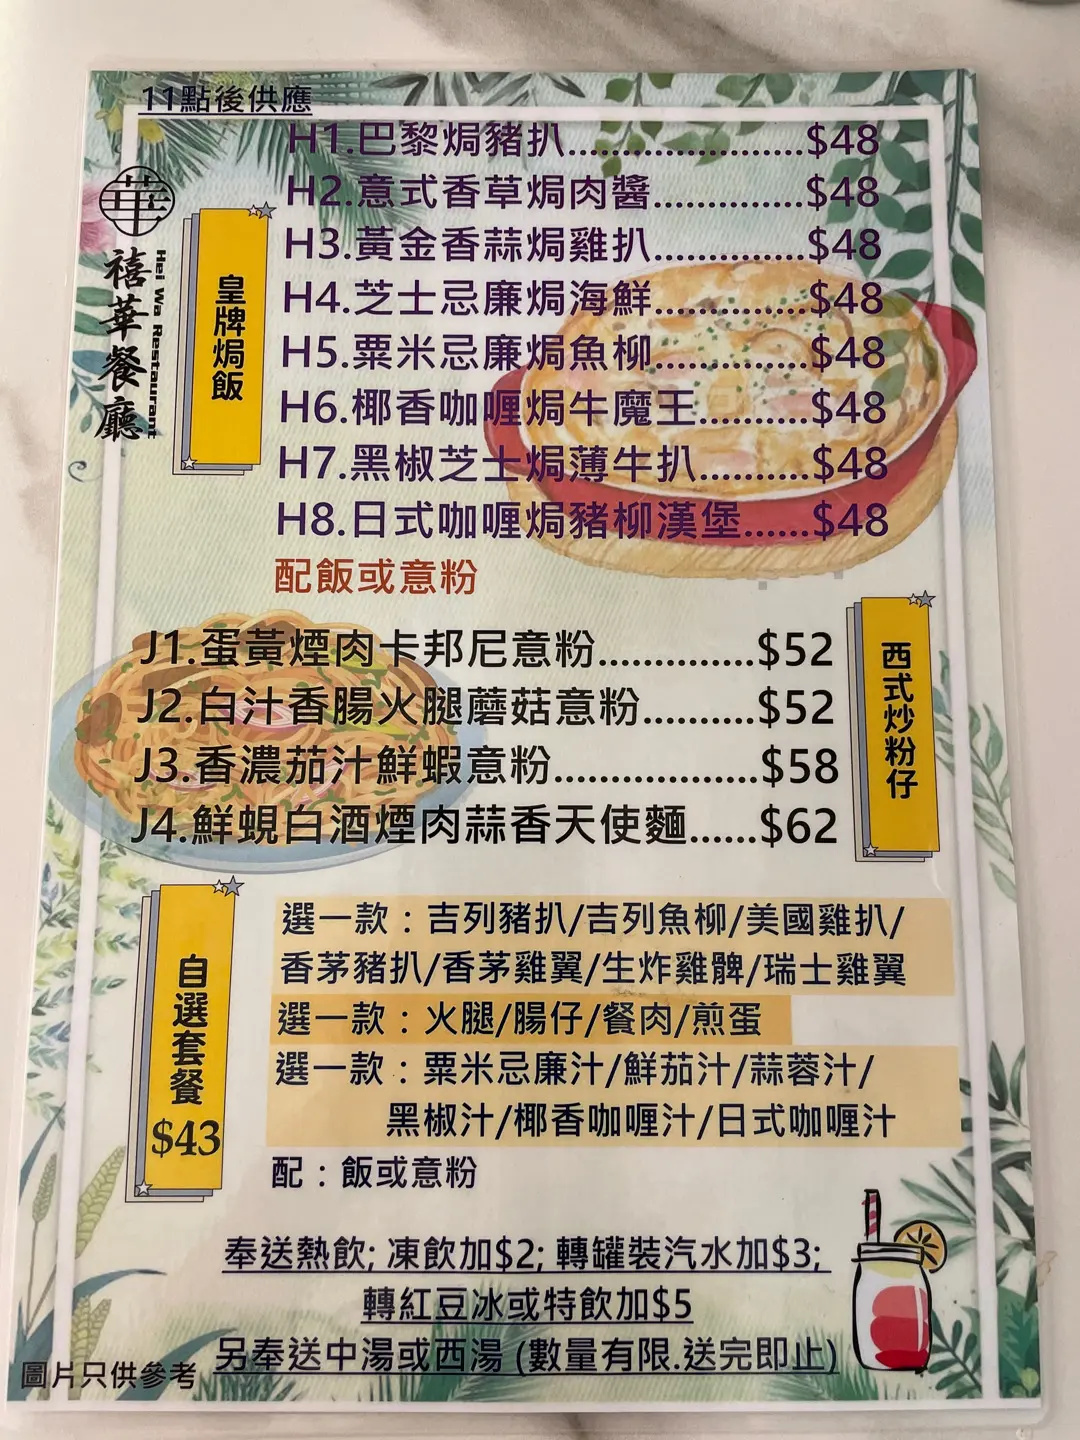 11點後供應
華
禧華餐廳
Hei Wa Restaurant
皇牌焗飯
H1.巴黎焗豬扒......................$48
H2.意式香草焗肉醬..............$48
H3.黃金香蒜焗雞扒..............$48
H4.芝士忌廉焗海鮮..............$48
H5.粟米忌廉焗魚柳..............$48
H6.椰香咖喱焗牛魔王..........$48
H7.黑椒芝士焗薄牛扒..........$48
H8.日式咖喱焗豬柳漢堡......$48
配飯或意粉
西式炒粉仔
J1.蛋黃煙肉卡邦尼意粉..............$52
J2.白汁香腸火腿蘑菇意粉..........$52
J3.香濃茄汁鮮蝦意粉..................$58
J4.鮮蜆白酒煙肉蒜香天使麵......$62
自選套餐
$43
選一款：吉列豬扒/吉列魚柳/美國雞扒/
香茅豬扒/香茅雞翼/生炸雞髀/瑞士雞翼
選一款：火腿/腸仔/餐肉/煎蛋
選一款：粟米忌廉汁/鮮茄汁/蒜蓉汁/
黑椒汁/椰香咖喱汁/日式咖喱汁
配：飯或意粉
奉送熱飲; 凍飲加$2; 轉罐裝汽水加$3;
轉紅豆冰或特飲加$5
另奉送中湯或西湯 (數量有限.送完即止)
圖片只供參考